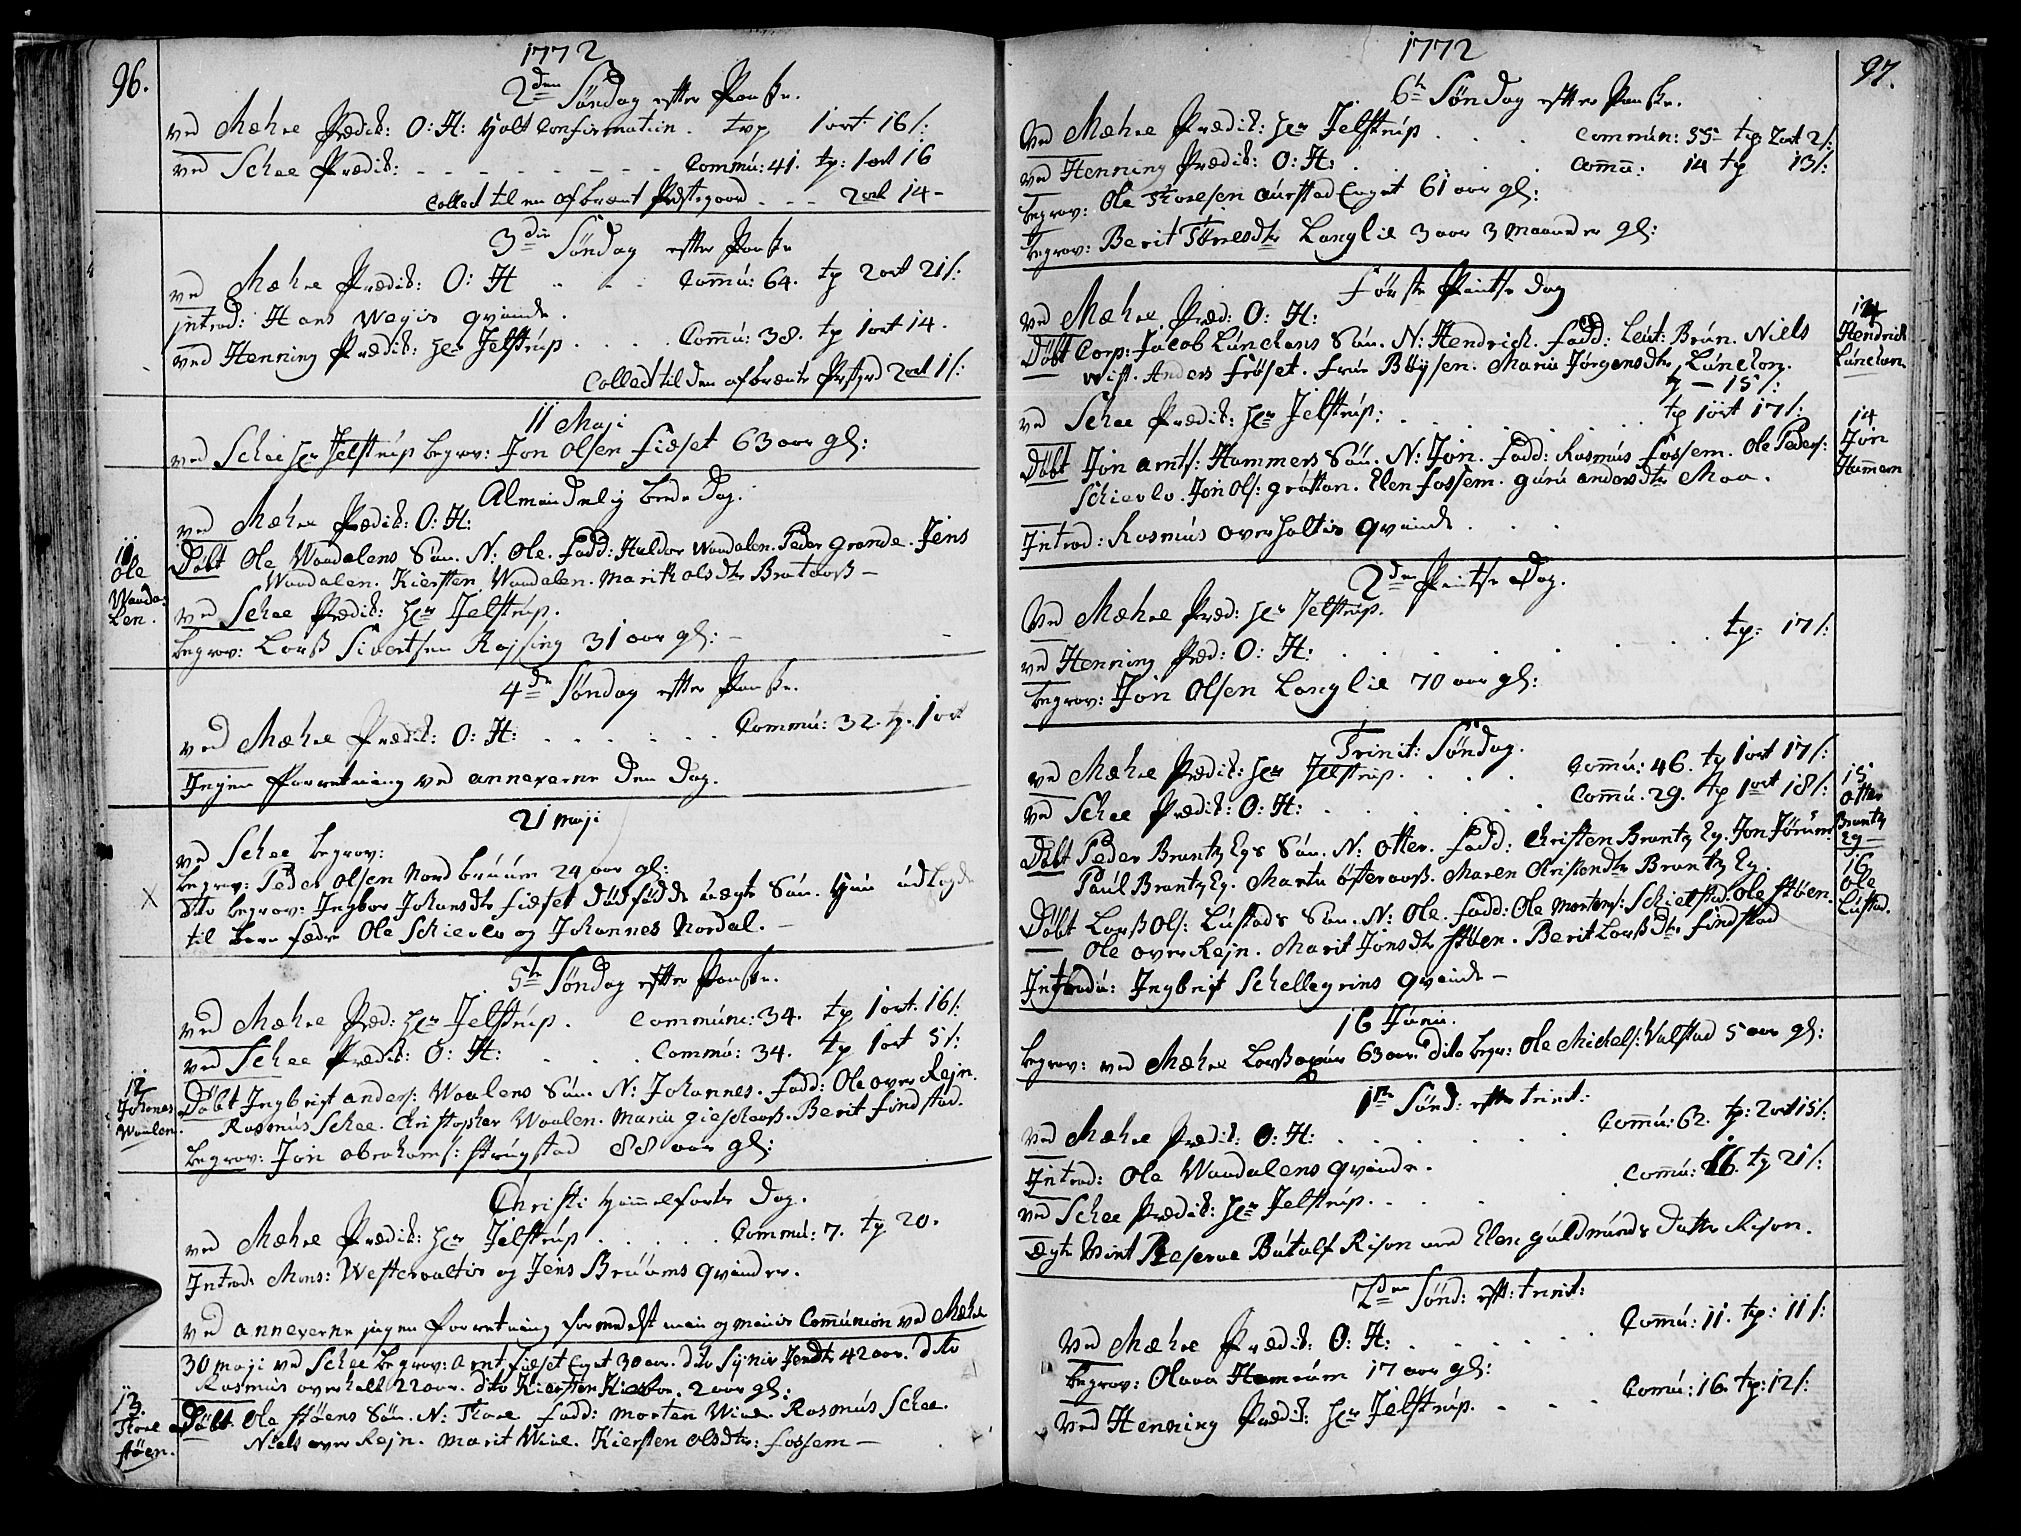 96.
1772
2den Søndag efter Paaske.
ved Mæhre Prædik: O: H: Holt Confirmation. tvp 1 ort 16 s:
ved Schee Prædik: - - - - Commu: 41. tp: 1 ort 16
Collect til en afbrænt Præstegaard - - - 2 ort 14 -
3die Søndag efter Paaske
ved Mæhre Prædik: O: H . . . Commu: 64. tp 2 ort 21 s:
Introd: Hans qvinde.
ved Henning Prædik: Hr Jelstrup . . . . Commu: 38. tp 1 ort 14.
Collect til den afbrænte Prstgrd 2 ort 1 s:
11 Maji
ved Schee Hr Jelstrup begrov: Jon Olsen Fieset 63 aar gl:
Almindelig bede Dag.
ved Mæhre Prædik: O: H:
Døbt Ole Waadalens Søn. N: Ole. Fadd: Haldor Waadalen. Peder Grande. Jens
Waadalen. Kiersten Waadalen. Marit Olsdtr Brataas -
10
Ole
Waada-
len.
ved Schee Prædik: Hr Jelstrup.
begrov: Lars Sivertsen Røising 31 aar gl: -
4de Søndag efter Paaske.
ved Mæhre Prædik: O: H: . . . . . . Commu: 32. tp. 1 ort
Ingen Forretning ved annexerne den Dag.
21 Maji
ved Schee begrov:
begrov: Peder Olsen Nordbruum 24 aar gl:
X
dito begrov: Ingbor Johansdtr Fieset dødfødde uægte Søn. Hun udlagde
til barne fædre Ole Schievlo og Johannes Nordal. -
5te Søndag efter Paaske.
ved Mæhre Præd: Hr Jelstrup. Commune: 34. tp 1 ort. 16 s:
ved Schee Prædik: O: H: . . . Commu: 34. tp 1 ort 5 s:
12
Johanes
Waalen.
Døbt Ingbrigt anders: Waalens Søn. N: Johannes. Fadd: Ole over Rejn.
Rasmus Schee. Christopher Waalen. Maria Berit Findstad.
begrov: Jon abrahams: Strugstad 88 aar gl:
Christi Himmelfarts Dag.
ved Mæhre Prædik: Hr Jelstrup . . . . . Commu: 7. tp 20.
Introd: Mons: og Jens Bruums qvinder.
ved annexerne ingen Forretning formedelst min og minis Communion ved Mæhre
30 maji ved Schee begrov: Arnt Fieset 30 aar. dito 42 aar. dito
Rasmus overhalt 22 aar. dito Kiersten 2 aar gl:
13.
Thore
Støen.
Døbt Ole Støens Søn. N: Thore Fadd: Morten Rasmus Schee.
Niels over Rejn. Marit Kiersten Olsdtr: Fossem -
97.
1772
6te Søndag efter Paaske.
Ved Mæhre Prædik: Hr Jelstrup . . . Commun: 55 tp: 2 ort 2 s:
ved Henning Prædik: O: H: . . . . Commu: 14 tp 13 s:
begrov: Ole Thoresen Aurstad 61 aar gl:
begrov: Berit Tøresdtr Langlie 3 aar 3 maaneder gl:
Første Pintse Dag
ved Mæhre Præd: O: H:
14
Hendrich
Lunelan.
Døbt Corp: Jacob Søn. N: Hendrich. Fadd: Leut: Brun. Niels
Wist. Anders Frøset. Frue Bøysen. Maria Jørgensdtr
7 - 15 s:
ved Schee Prædik: Hr Jelstrup: . . . . . tp 1 ort 17 s:
14
Jon
Hammern
Døbt Jon arnts: Hammers Søn. N: Jon. Fadd: Rasmus Fossem. Ole Peders:
Schievlo. Jon Ols: Elen Fossem. Guru andersdtr Moa.
Introd: Rasmus overhaltis qvinde . . .
2den Pintse Dag.
Ved Mæhre Præd: Hr Jelstrup.
ved Henning Præd: O: H: . . . . . . . tp: 17 s:
begrov: Jon Olsen Langlie 70 aar gl:
Trinit: Søndag.
ved Mæhre Prædik: Hr Jelstrup. . . . Commu: 46. tp 1 ort 17 s:
ved Schee Prædik: O: H: . . . . . Commu. 29. tp 1 ort 18 s:
15
Otter
Brantz
Eg
Døbt Peder Brantz Egs Søn. N: Otter. Fadd: Christen Brantz Eg. Jon Jørum.
Paul Brantz Eg. Marta Østeraas. Maren Christendtr Brantz Eg.
16
Ole
Lustad.
Døbt Lars Ols: Lustads Søn. N: Ole. Fadd: Ole Mortens: Schielstad. Ole Støen.
Ole over Rejn. Marit Jonsdtr Støen. Berit Larsdtr Findstad
Introdu: Ingbrigt Schellegrins qvinde -
16 Junii.
begrov: ved Mæhre Lars 63 aar. dito begr: Ole Michels: Valstad 5 aar gl:
1ste Sønd: efter trinit:
ved Mæhre Prædik: O: H: . . . . . . Commu: 62. tp: 2 ort 15 s:
Introd: Ole Waadalens qvinde.
ved Schee Prædik: Hr Jelstrup. . . . . Commu: 16. tp 21 s:
Ægte Viet Reserve Butolf Rison med Elen Guldmunds Datter Rison.
2den Sønd: eft: trinit:
ved Mæhre Prædik: O: H: . . . . . Commu: 11. tp: 11 s:
begrov: Olava Hamrum 17 aar gl:
ved Henning Prædik: Hr Jelstrup. - - - Commu: 16. tp: 12 s: